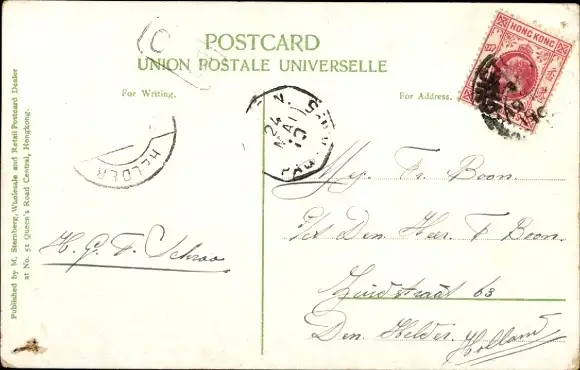 POSTCARD
UNION POSTALE UNIVERSELLE
For Writing.
For Address.
HONG KONG
Published by M. Sternberg, Wholesale and Retail Postcard Dealer
at No. 51 Queen's Road Central, Hongkong.
HELDER
24
MAI
10
Mej. Fr. Boon.
Den Heer F Boon.
Zuidstraat 63
Den Helder
Holland
H. G. F. Schroo